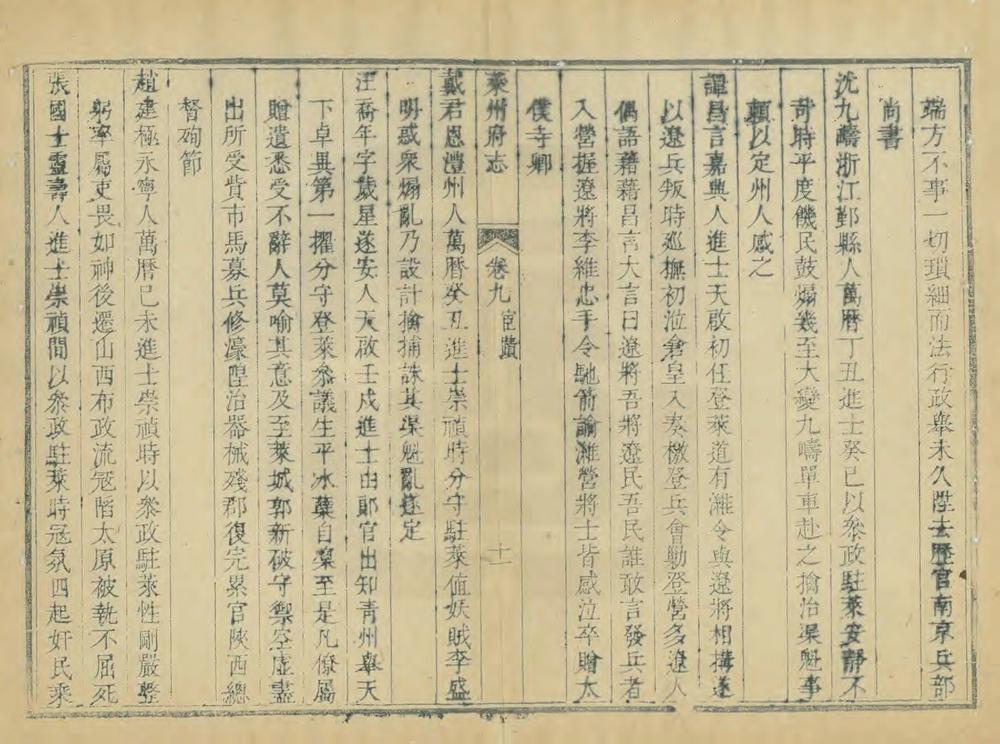 端方不事一切瑣細而法行政舉未久陞去歷官南京兵部
尚書
沈九疇浙江鄞縣人萬曆丁丑進士癸巳以叅政駐萊安靜不
苛時平度饑民鼓煽幾至大變九疇單車赴之擒治渠魁事
賴以定州人感之
譚昌言嘉興人進士天啟初任登萊道有濰令與遼將相搆遂
以遼兵叛時巡撫初涖倉皇入奏檄登兵會勦登營多遼人
偶語藉藉昌言大言曰遼將吾將遼民吾民誰敢言發兵者
入營握遼將李維忠手令馳箭諭濰營將士皆感泣卒贈太
僕寺卿
萊州府志 卷九 宦蹟 十一
戴君恩澧州人萬曆癸丑進士崇禎時分守駐萊值妖賊李盛
明惑衆煽亂乃設計擒捕誅其渠魁亂遂定
汪喬年字歲星遂安人天啟壬戌進士由郞官出知青州舉天
下卓異第一擢分守登萊叅議生平冰蘗自稟至是凡僚屬
贈遺悉受不辭人莫喻其意及至萊城郭新破守禦空虛盡
出所受貲市馬募兵修濠隍治器械殘郡復完累官陝西總
督殉節
趙建極永寧人萬曆己未進士崇禎時以叅政駐萊性剛嚴整
躬率屬吏畏如神後遷山西布政流寇陷太原被執不屈死
張國士靈壽人進士崇禎間以叅政駐萊時寇氛四起奸民乘